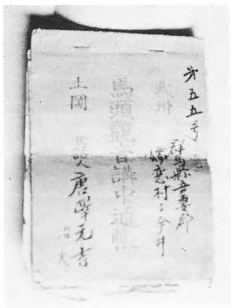 第五五号
群馬縣吾妻郡
嬬恋村今井
馬頭観音講中通帳
土岡
唐澤元吉